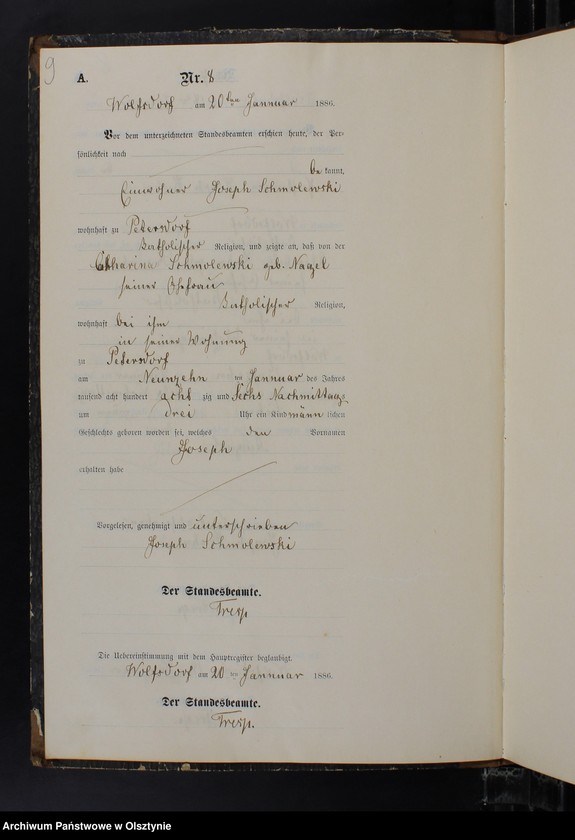 9
A. Nr. 8
Wolfsdorf am 20 ten Januar 1886.
Vor dem unterzeichneten Standesbeamten erschien heute, der Per-
sönlichkeit nach
be kannt,
Einwohner Joseph Schmolewski
wohnhaft zu Petersdorf
katholischer Religion, und zeigte an, daß von der
Catharina Schmolewski geb. Nagel
seiner Ehefrau
katholischer Religion,
wohnhaft bei ihm
in seiner Wohnung
zu Petersdorf
am Neunzehn ten Januar des Jahres
tausend acht hundert acht zig und Sechs Nachmittags
um drei Uhr ein Kind männ lichen
Geschlechts geboren worden sei, welches den Vornamen
Joseph
erhalten habe
Vorgelesen, genehmigt und unterschrieben
Joseph Schmolewski
Der Standesbeamte.
Tresp.
Die Uebereinstimmung mit dem Hauptregister beglaubigt.
Wolfsdorf am 20 ten Januar 1886.
Der Standesbeamte.
Tresp.
Archiwum Państwowe w Olsztynie